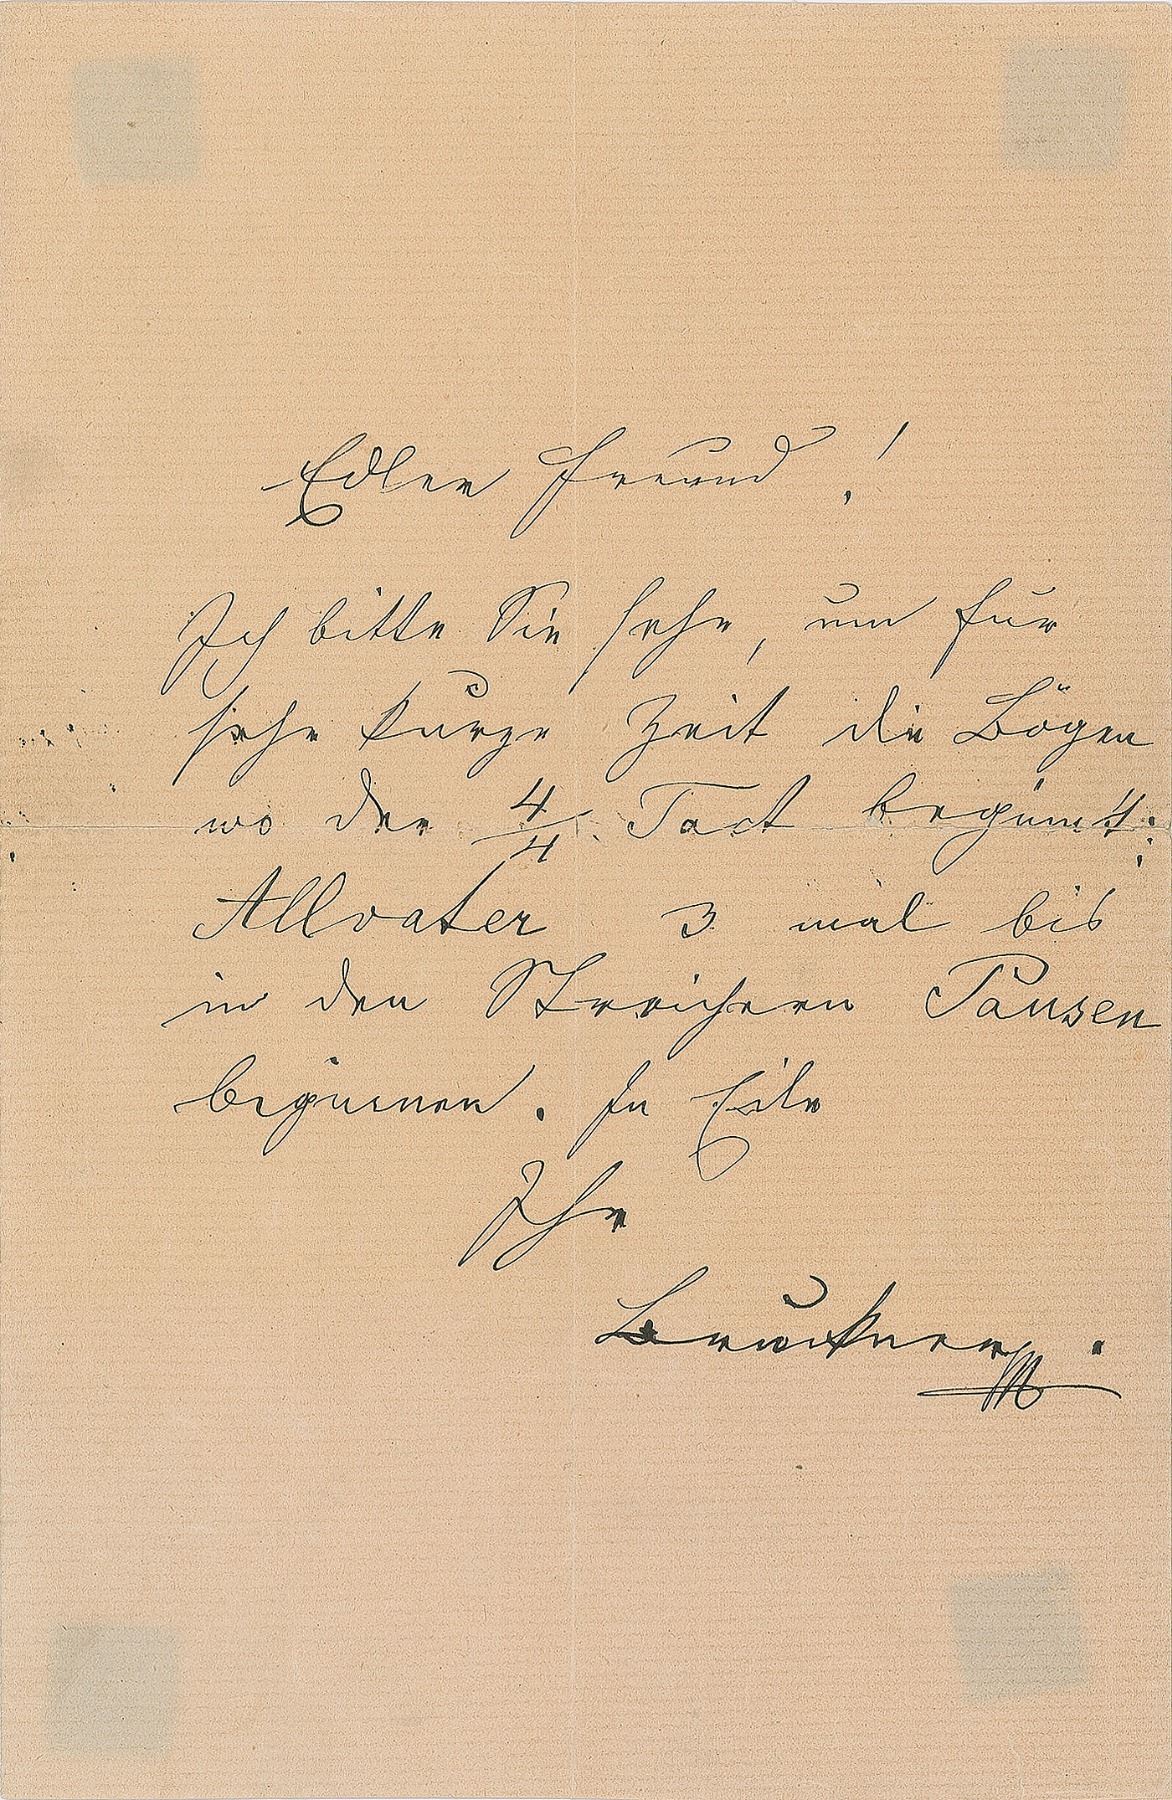 Edler Freund!
Ich bitte Sie sehr, um für
sehr kurze Zeit die Bögen
wo der 4/4 Tact beginnt:
Allvater 3 mal bis
in den Streichern Pausen
beginnen. In Eile
Ihr
Bruckner